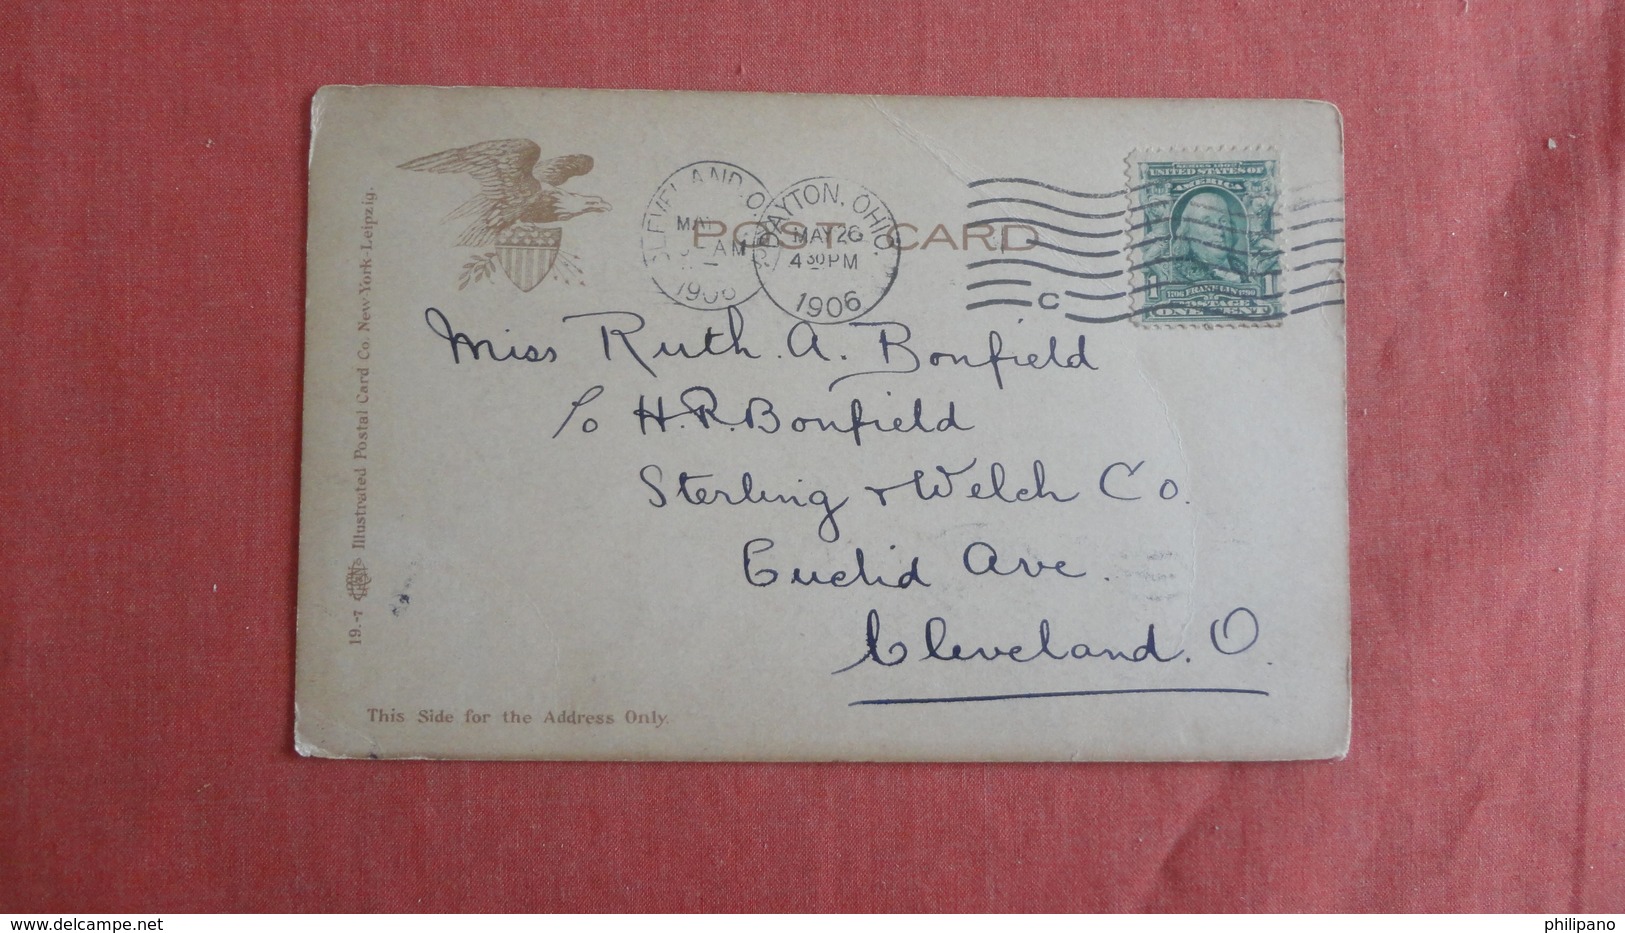 CLEVELAND, O.
1906
DAYTON, OHIO.
MAY 26
4 30 PM
1906
POST CARD
C
SERIES 1902
UNITED STATES OF
AMERICA
1 1706 FRANKLIN 1790 1
POSTAGE
ONE CENT
Miss Ruth. A. Bonfield
c/o H. R. Bonfield
Sterling & Welch Co.
Euclid Ave.
Cleveland. O.
19.-7 Illustrated Postal Card Co. New York-Leipzig.
This Side for the Address Only.
philipano